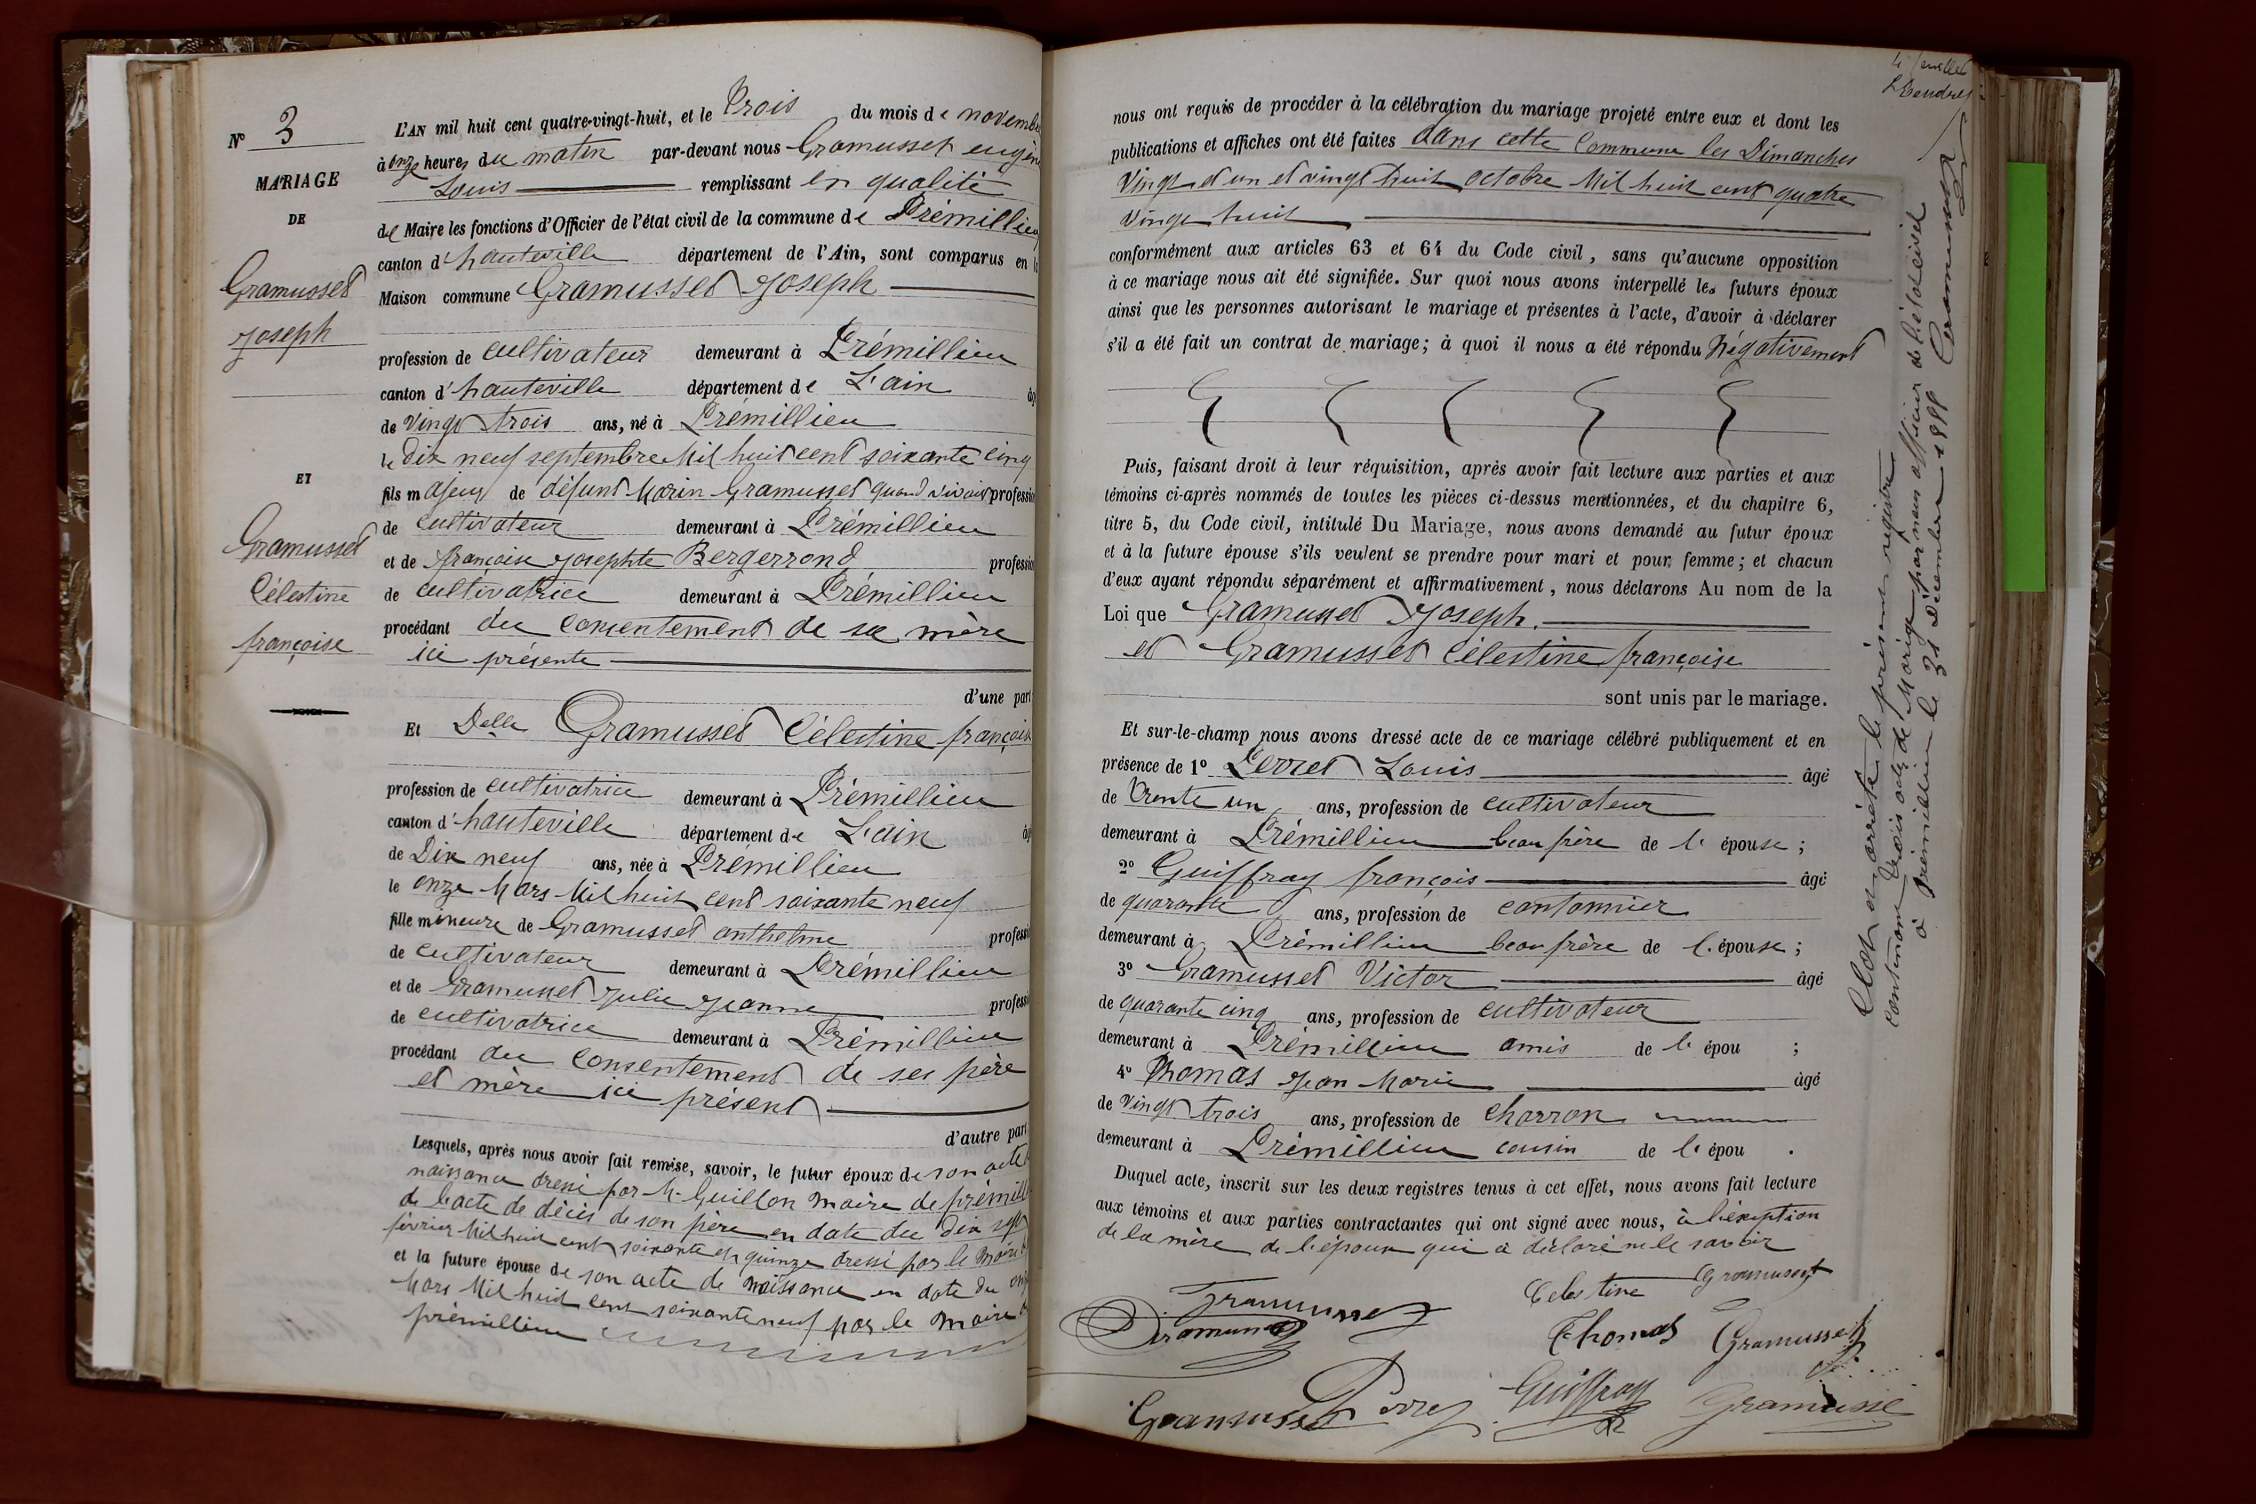 N° 3
MARIAGE
DE
Gramusset
Joseph
ET
Gramusset
Célestine
françoise
L'AN mil huit cent quatre-vingt-huit, et le Trois du mois de novembre
à onze heures du matin par-devant nous Gramusset eugène
Louis remplissant en qualité
de Maire les fonctions d'Officier de l'état civil de la commune de Prémillieu
canton d'hauteville département de l'Ain, sont comparus en la
Maison commune Gramusset Joseph
profession de cultivateur demeurant à Prémillieu
canton d'hauteville département de L'ain
de Vingt trois ans, né à Prémillieu
le dix neuf septembre Mil huit cent soixante cinq
fils majeur de défunt Marin Gramusset quand vivait profession
de cultivateur demeurant à Prémillieu
et de françoise Josephte Bergerrond profession
de cultivatrice demeurant à Prémillieu
procédant du consentement de sa mère
ici présente
d'une part
Et Delle Gramusset Célestine françoise
profession de cultivatrice demeurant à Prémillieu
canton d'hauteville département de L'ain
de Dix neuf ans, née à Prémillieu
le onze Mars Mil huit cent soixante neuf
fille mineure de Gramusset anthelme profession
de cultivateur demeurant à Prémillieu
et de Gramusset Julie Jeanne profession
de cultivatrice demeurant à Prémillieu
procédant du consentement de ses père
et mère ici présent
d'autre part
Lesquels, après nous avoir fait remise, savoir, le futur époux de son acte
naissance dressé par M. Guillon maire de prémillieu
de l'acte de décès de son père en date du dix sept
février Mil huit cent soixante et quinze dressé par le Maire
et la future épouse de son acte de naissance en date du onze
Mars Mil huit cent soixante neuf par le maire
prémillieu
nous ont requis de procéder à la célébration du mariage projeté entre eux et dont les
publications et affiches ont été faites dans cette Commune les Dimanches
Vingt et un et vingt huit octobre Mil huit cent quatre
vingt huit
conformément aux articles 63 et 64 du Code civil, sans qu'aucune opposition
à ce mariage nous ait été signifiée. Sur quoi nous avons interpellé les futurs époux
ainsi que les personnes autorisant le mariage et présentes à l'acte, d'avoir à déclarer
s'il a été fait un contrat de mariage; à quoi il nous a été répondu Négativement
Puis, faisant droit à leur réquisition, après avoir fait lecture aux parties et aux
témoins ci-après nommés de toutes les pièces ci-dessus mentionnées, et du chapitre 6,
titre 5, du Code civil, intitulé Du Mariage, nous avons demandé au futur époux
et à la future épouse s'ils veulent se prendre pour mari et pour femme; et chacun
d'eux ayant répondu séparément et affirmativement, nous déclarons Au nom de la
Loi que Gramusset Joseph
et Gramusset Célestine françoise
sont unis par le mariage.
Et sur-le-champ nous avons dressé acte de ce mariage célébré publiquement et en
présence de 1° Perret Louis âgé
de Trente un ans, profession de cultivateur
demeurant à Prémillieu beau frère de l'épouse;
2° Guiffray françois âgé
de quarante ans, profession de cantonnier
demeurant à Prémillieu beau frère de l'épouse;
3° Gramusset Victor âgé
de quarante cinq ans, profession de cultivateur
demeurant à Prémillieu amis de l'épou;
4° Thomas Jean Marie âgé
de Vingt trois ans, profession de charron
demeurant à Prémillieu cousin de l'épou.
Duquel acte, inscrit sur les deux registres tenus à cet effet, nous avons fait lecture
aux témoins et aux parties contractantes qui ont signé avec nous, à l'exeption
de la mère de l'époux qui a déclaré ne le savoir
Gramusset
Celestine Gramusset
Gramusset
Thomas Gramusset
Gramusset Perret Guiffray Gramusse
Clos et arrêté le présent registre
contenant trois actes de Mariage par nous officier de l'état civil
à Prémillieu le 31 Décembre 1888 Gramusset